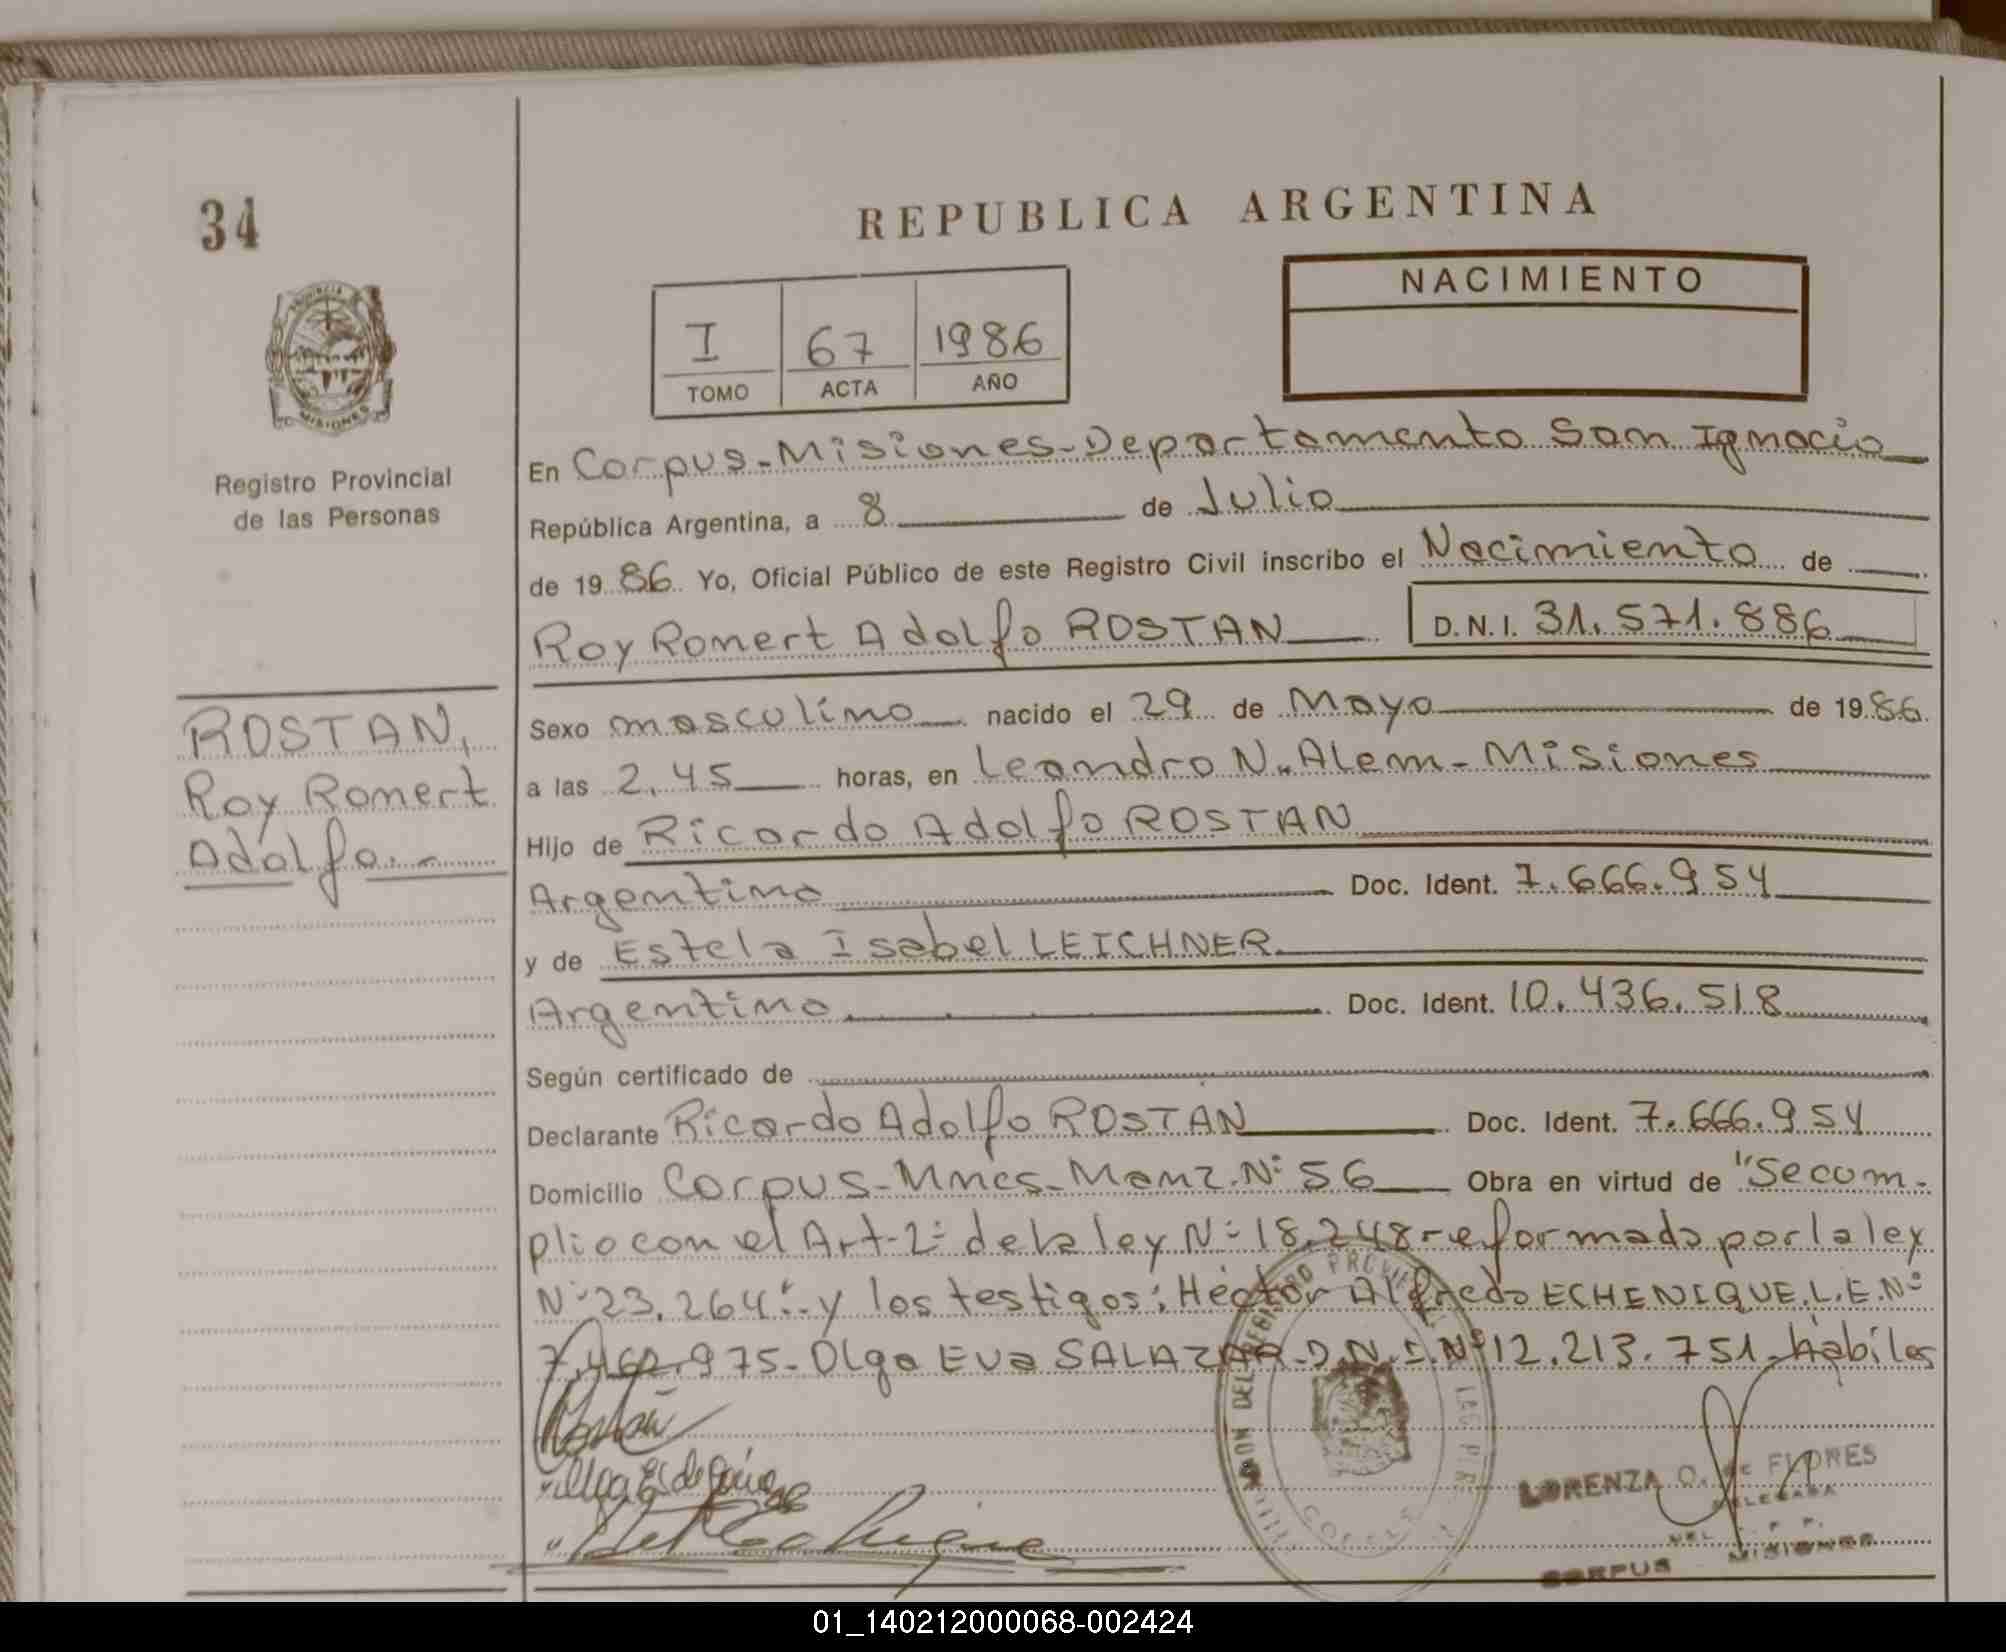 34
REPUBLICA ARGENTINA
NACIMIENTO
I 67 1986
TOMO ACTA AÑO
PROVINCIA
MISIONES
Registro Provincial
de las Personas
En Corpus-Misiones-Departamento San Ignacio
República Argentina, a 8 de Julio
de 1986 Yo, Oficial Público de este Registro Civil inscribo el Nacimiento de
Roy Romert Adolfo ROSTAN D.N.I. 31.571.886
Sexo masculino nacido el 29 de Mayo de 1986
a las 2,45 horas, en Leandro N. Alem - Misiones
Hijo de Ricardo Adolfo ROSTAN
Argentino Doc. Ident. 7.666.954
y de Estela Isabel LEICHNER
Argentina Doc. Ident. 10.436.518
Según certificado de
Declarante Ricardo Adolfo ROSTAN Doc. Ident. 7.666.954
Domicilio Corpus-Mnes-Manz. Nº 56 Obra en virtud de "Se cum-
plio con el Art-2º de la ley Nº 18.248-reformado por la ley
Nº 23.264"- y los testigos: Héctor Alfredo ECHENIQUE.L.E.Nº
7.462.975- Olga Eva SALAZAR-D.N.I.Nº 12.213.751-hábiles
ROSTAN,
Roy Romert
Adolfo.-
LORENZA O. de FLORES
DELEGADA
DEL R. P. P.
CORPUS MISIONES
01_140212000068-002424